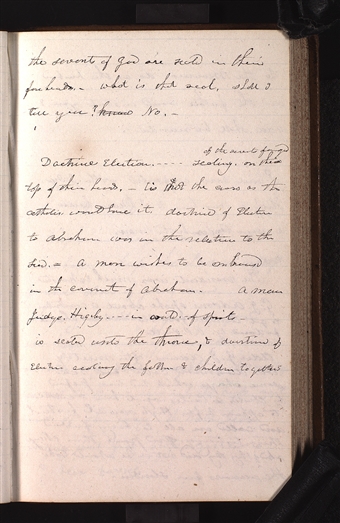 the servant of God are seald in their
foreheads. - what is that seal, shall I
tell you? know No. -
of the servant of God
Doctrine Election. - - - - sealing. on the
top of their head. - is not the cross as the
catholic would have it. doctrine of Election
to Abraham was in the relation to the
Seed. = A man wishes to be embraced
in the covenant of Abraham. A man
Judge. Higby - - - in world of spirits
is sealed unto the throne, & doctrine of
Election sealing the father & children together